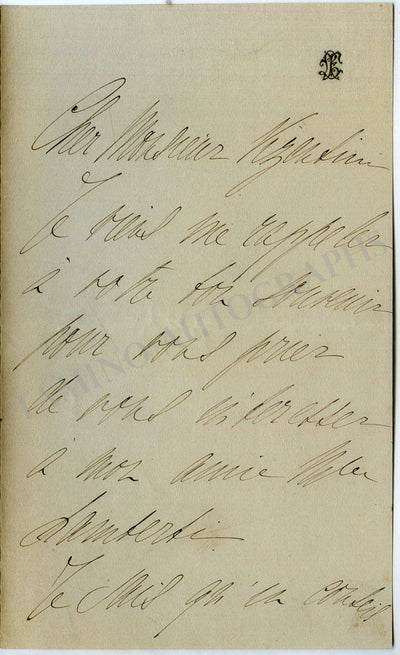 Cher Monsieur Vizentini
Je viens me rappeler
à votre bon souvenir
pour vous prier
de vous intéresser
à mon amie Mlle
Lamberti.
Je sais qu'en conseil
TAMINO AUTOGRAPHS